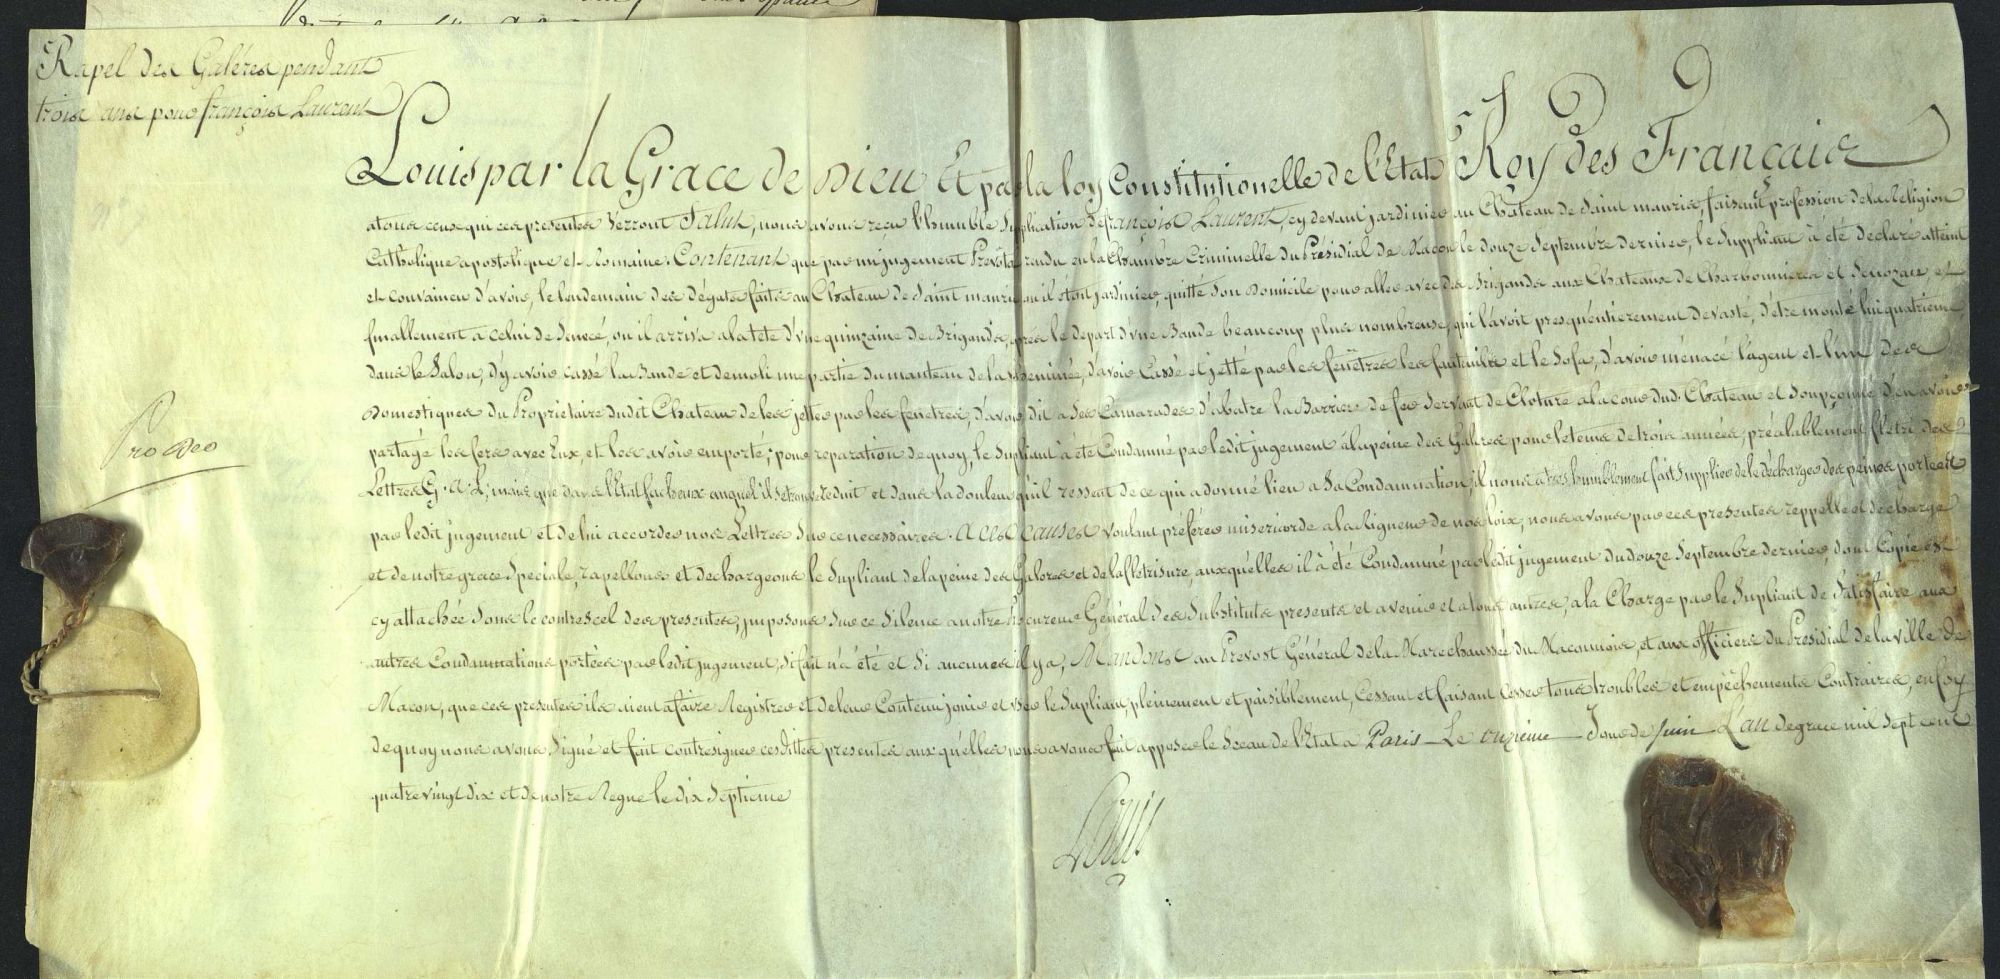 Rapel des Galéres pendant
trois ans pour françois Laurent
Louis par la Grace de Dieu Et par la loy Constitutionelle de l'Etat Roy des Français
atous ceux qui ces presentes Verront Salut, nous avons reçu l'humble Suplication de françois Laurent, cy devant jardinier au Chateau de Saint mauris, faisant profession de la Religion
Catholique apostolique et Romaine. Contenant que par un jugement Prevotal rendu en la Chambre Criminelle du Présidial de Macon le douze Septembre dernier, le Suppliant à été declaré atteint
et convaincu d'avoir, le lendemain des dégats faits au Chateau de Saint mauris ou il étoit jardinier, quitté son Domicile pour aller avec des Brigands aux Chateaux de Charbonnieres et Senozan et
finallement a celui de Senecé, ou il arriva a la tete d'une quinzaine de Brigands, après le depart d'une Bande beaucoup plus nombreuse, qui l'avoit presqu'entierement devasté, d'être monté lui quatrieme,
dans le Salon, d'y avoir cassé la Bande et demoli une partie du manteau de la cheminée, d'avoir Cassé et jetté par les fenêtres les fauteuils et le Sofa, d'avoir ménacé l'agent et l'un des
Domestiques du Proprietaire dudit Chateau de les jetter par les fenetres, d'avoir dit a Ses Camarades d'abatre la Barriere de fer Servant de Cloture a la cour dud. Chateau et Soupçonné d'en avoir
partagé les fers avec Eux, et les avoir emporté; pour reparation de quoy, le Supliant à été Condamné par ledit jugement à la peine des Galeres pour le tems de trois années, préalablement flétri des
Lettres G. A. L; mais que dans l'Etat facheux auquel il se trouve reduit et dans la douleur qu'il ressent de ce qui a donné lieu a Sa Condamnation, il nous a tres humblement fait Supplier de le décharger des peines portées
par ledit jugement et de lui accorder nos Lettres Sur ce necessaires. A ces causes voulant préférer misericorde a la Rigueur de nos loix, nous avons par ces presentes rappellé et dechargé
et de notre grace Speciale, rapellons et dechargeons le Supliant de la peine des Galeres et de la fletrisure auxquélles il à été Condamné par ledit jugement du douze Septembre dernier, dont Copie est
cy attachée Sous le contrescel des presentes, imposons Sur ce Silence a notre Procureur Général Ses Substituts presents et avenir et a tous autres, a la Charge par le Supliant de Satisfaire aux
autres Condamnations portées par ledit jugement, Si fait n'a été et Si aucunes il y a, Mandons au Prevost Général de la Marechaussée du Maconnois, et aux officiers du Presidial de la Ville de
Macon, que ces presentes ils aient a faire Registrer et de leur Contenu jouir et user le Supliant, pleinement et paisiblement, Cessant et faisant Cesser tous troubles et empêchements Contraires, en foy
de quoy nous avons Signé et fait contresigner ces dittes presentes auxquelles nous avons fait apposer le Sceau de l'Etat a Paris Le onzieme Jour de Juin L'an de grace mil Sept cent
quatrevingt dix et de notre Regne le dix Septieme
Pro Deo
Louis